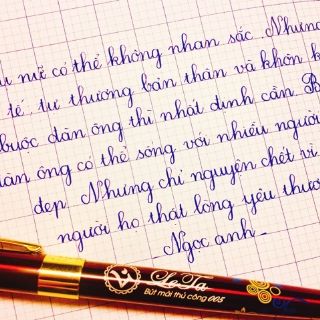 nữ có thể không nhan sắc. Nhưng
tế, tự thương bản thân và khôn
buộc đàn ông thì nhất định cần. B
đàn ông có thể sống với nhiều người
đẹp. Nhưng chỉ nguyện chết vì
người họ thật lòng yêu thươ
- Ngọc anh -
LeTa
Bút mài thủ công 005